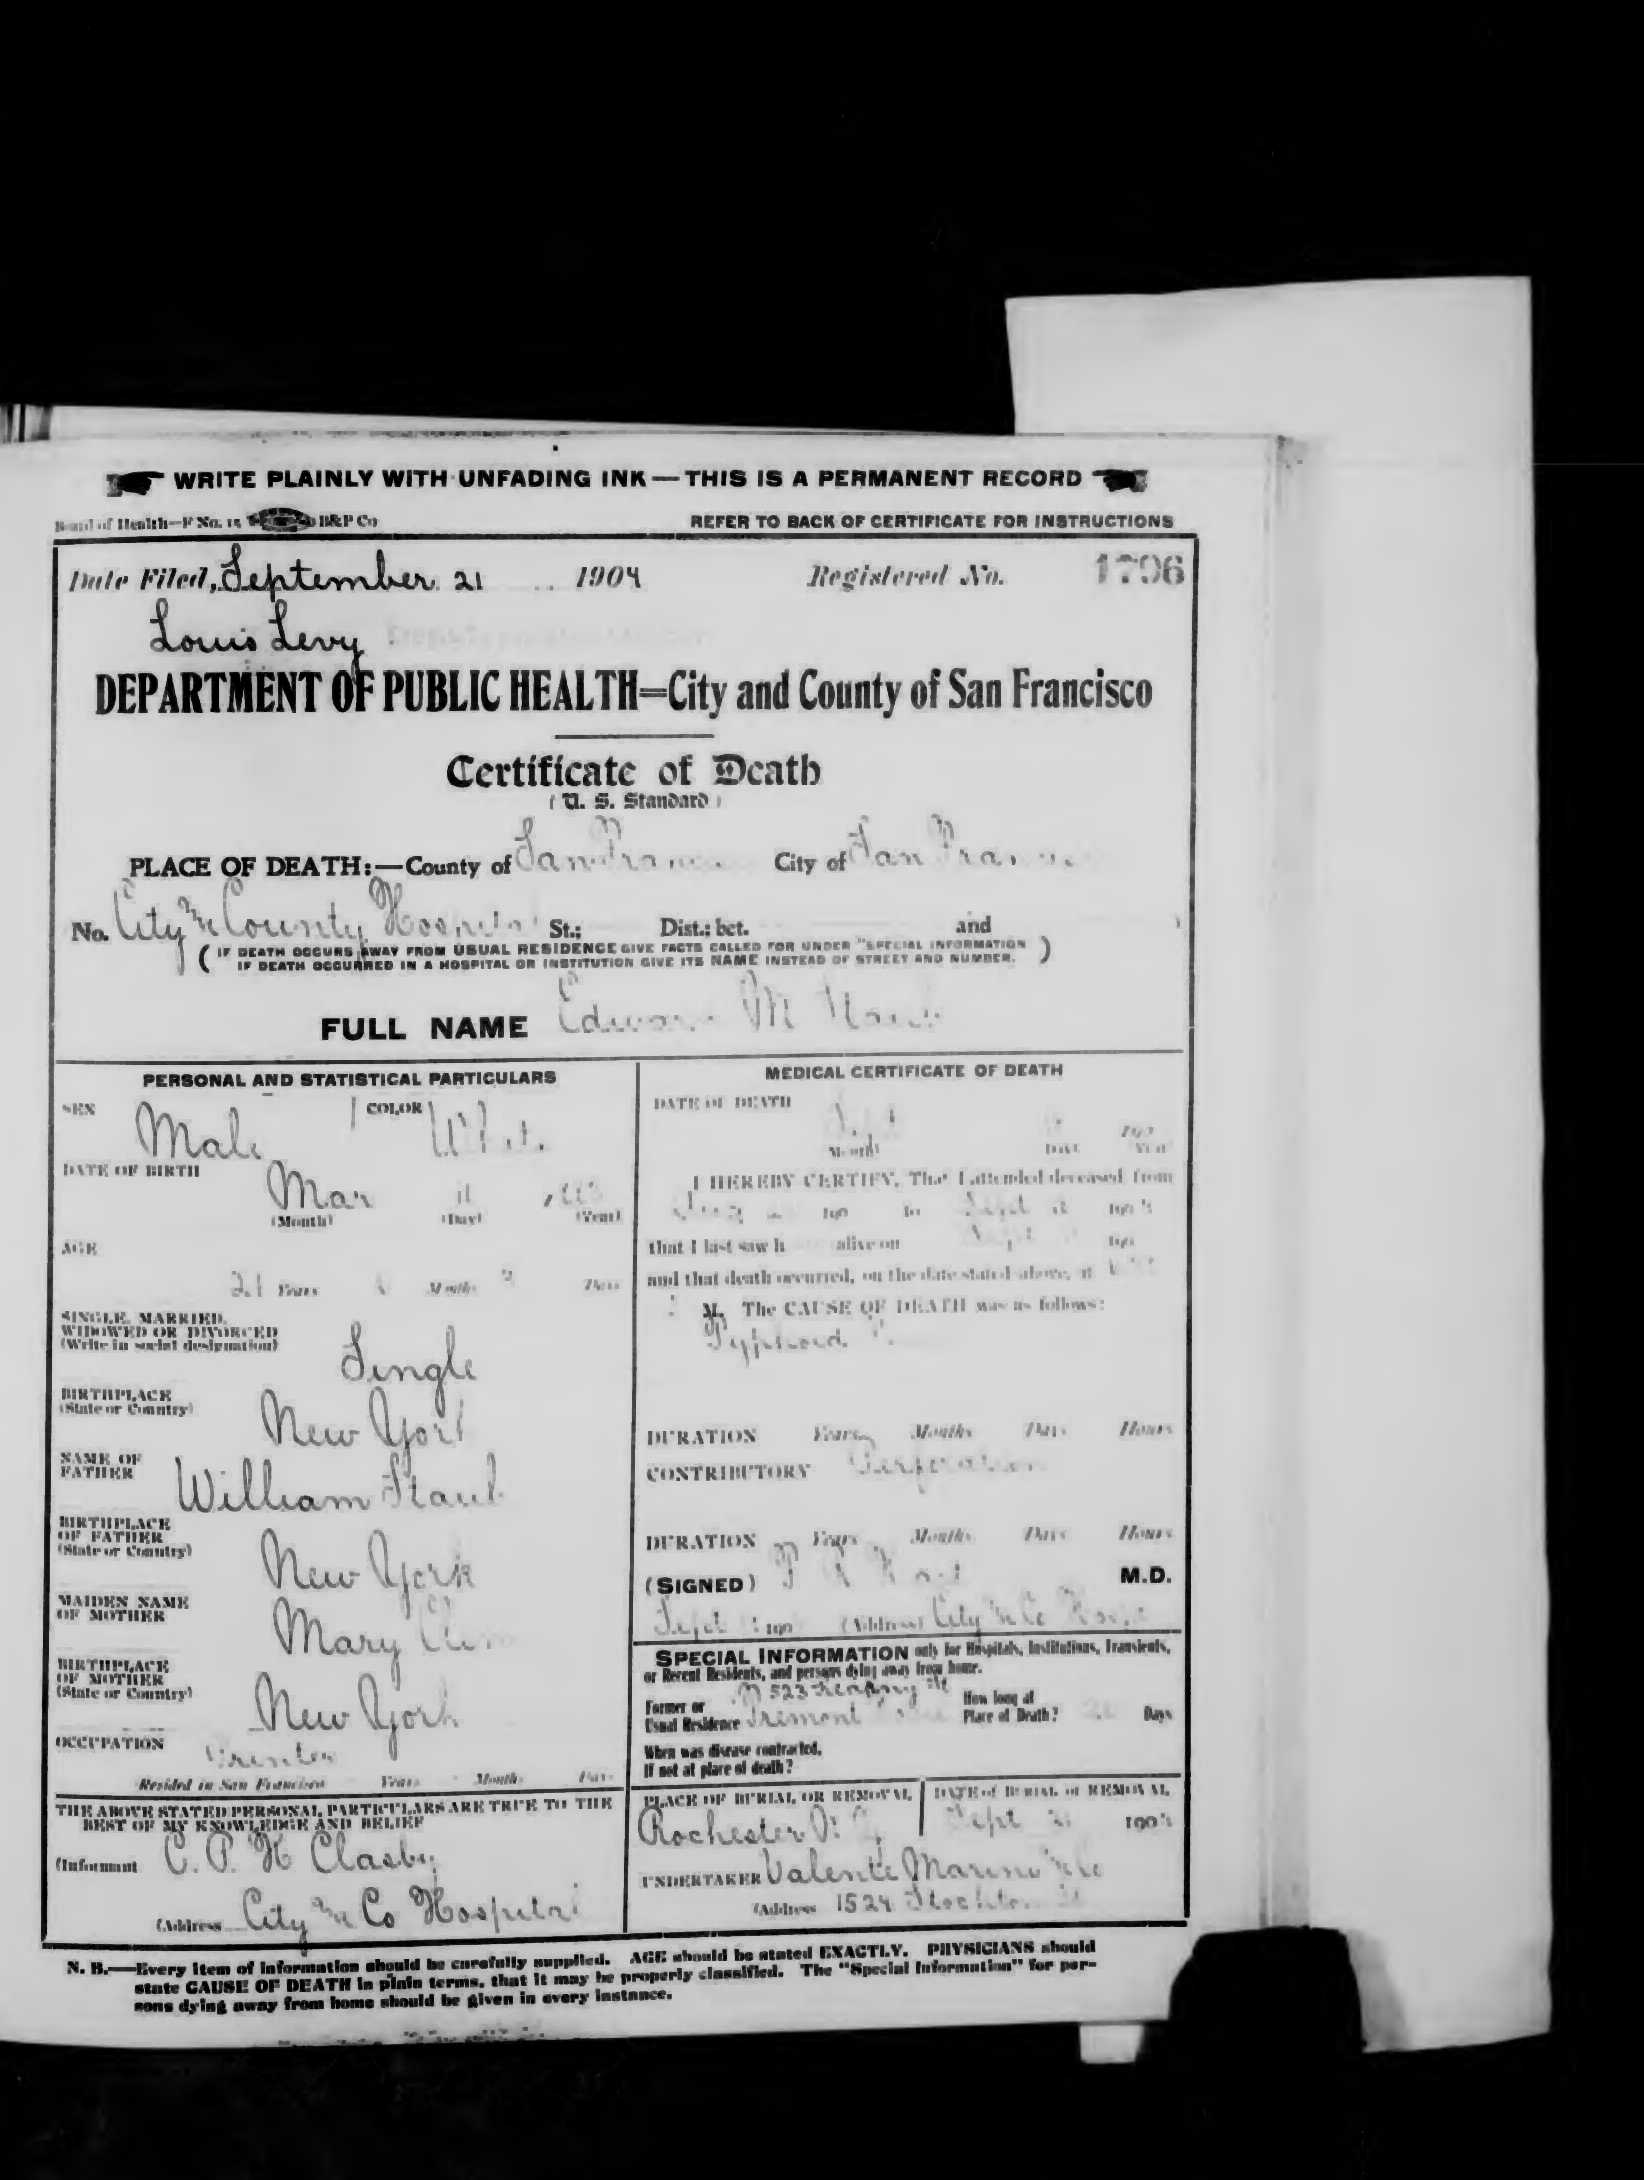 WRITE PLAINLY WITH UNFADING INK — THIS IS A PERMANENT RECORD
Board of Health—F No. 15 B&P Co
REFER TO BACK OF CERTIFICATE FOR INSTRUCTIONS
Date Filed, September 21 1904 Registered No. 1796
Louis Levy
DEPARTMENT OF PUBLIC HEALTH=City and County of San Francisco
Certificate of Death
( U. S. Standard )
PLACE OF DEATH:—County of San City of San
No. City & County St.; Dist.; bet. and
( IF DEATH OCCURS AWAY FROM USUAL RESIDENCE GIVE FACTS CALLED FOR UNDER "SPECIAL INFORMATION
IF DEATH OCCURRED IN A HOSPITAL OR INSTITUTION GIVE ITS NAME INSTEAD OF STREET AND NUMBER. )
FULL NAME Edward M
PERSONAL AND STATISTICAL PARTICULARS
SEX Male COLOR
DATE OF BIRTH Mar
(Month) (Day) (Year)
AGE
21 Years Months Days
SINGLE, MARRIED,
WIDOWED OR DIVORCED
(Write in social designation) Single
BIRTHPLACE
(State or Country) New York
NAME OF
FATHER William Staub
BIRTHPLACE
OF FATHER
(State or Country) New York
MAIDEN NAME
OF MOTHER Mary
BIRTHPLACE
OF MOTHER
(State or Country) New York
OCCUPATION
Resided in San Francisco Years Months Days
THE ABOVE STATED PERSONAL PARTICULARS ARE TRUE TO THE
BEST OF MY KNOWLEDGE AND BELIEF
(Informant C. P. H Clasby
(Address City & Co Hospital
MEDICAL CERTIFICATE OF DEATH
DATE OF DEATH
Month Day Year
I HEREBY CERTIFY, That I attended deceased from
190 to Sept 190
that I last saw h alive on 190
and that death occurred, on the date stated above, at
M. The CAUSE OF DEATH was as follows:
Typhoid
DURATION Years Months Days Hours
CONTRIBUTORY Perforation
DURATION Years Months Days Hours
(SIGNED) M.D.
Sept 190 (Address) City & Co
SPECIAL INFORMATION only for Hospitals, Institutions, Transients,
or Recent Residents, and persons dying away from home.
523 Kearny St
Former or How long at
Usual Residence Tremont Place of Death? Days
When was disease contracted,
If not at place of death?
PLACE OF BURIAL OR REMOVAL DATE of BURIAL or REMOVAL
Rochester N. Y. Sept 190
UNDERTAKER Valente Marini & Co
(Address 1524 Stockton St
N. B.—Every item of information should be carefully supplied. AGE should be stated EXACTLY. PHYSICIANS should
state CAUSE OF DEATH in plain terms, that it may be properly classified. The "Special Information" for per-
sons dying away from home should be given in every instance.